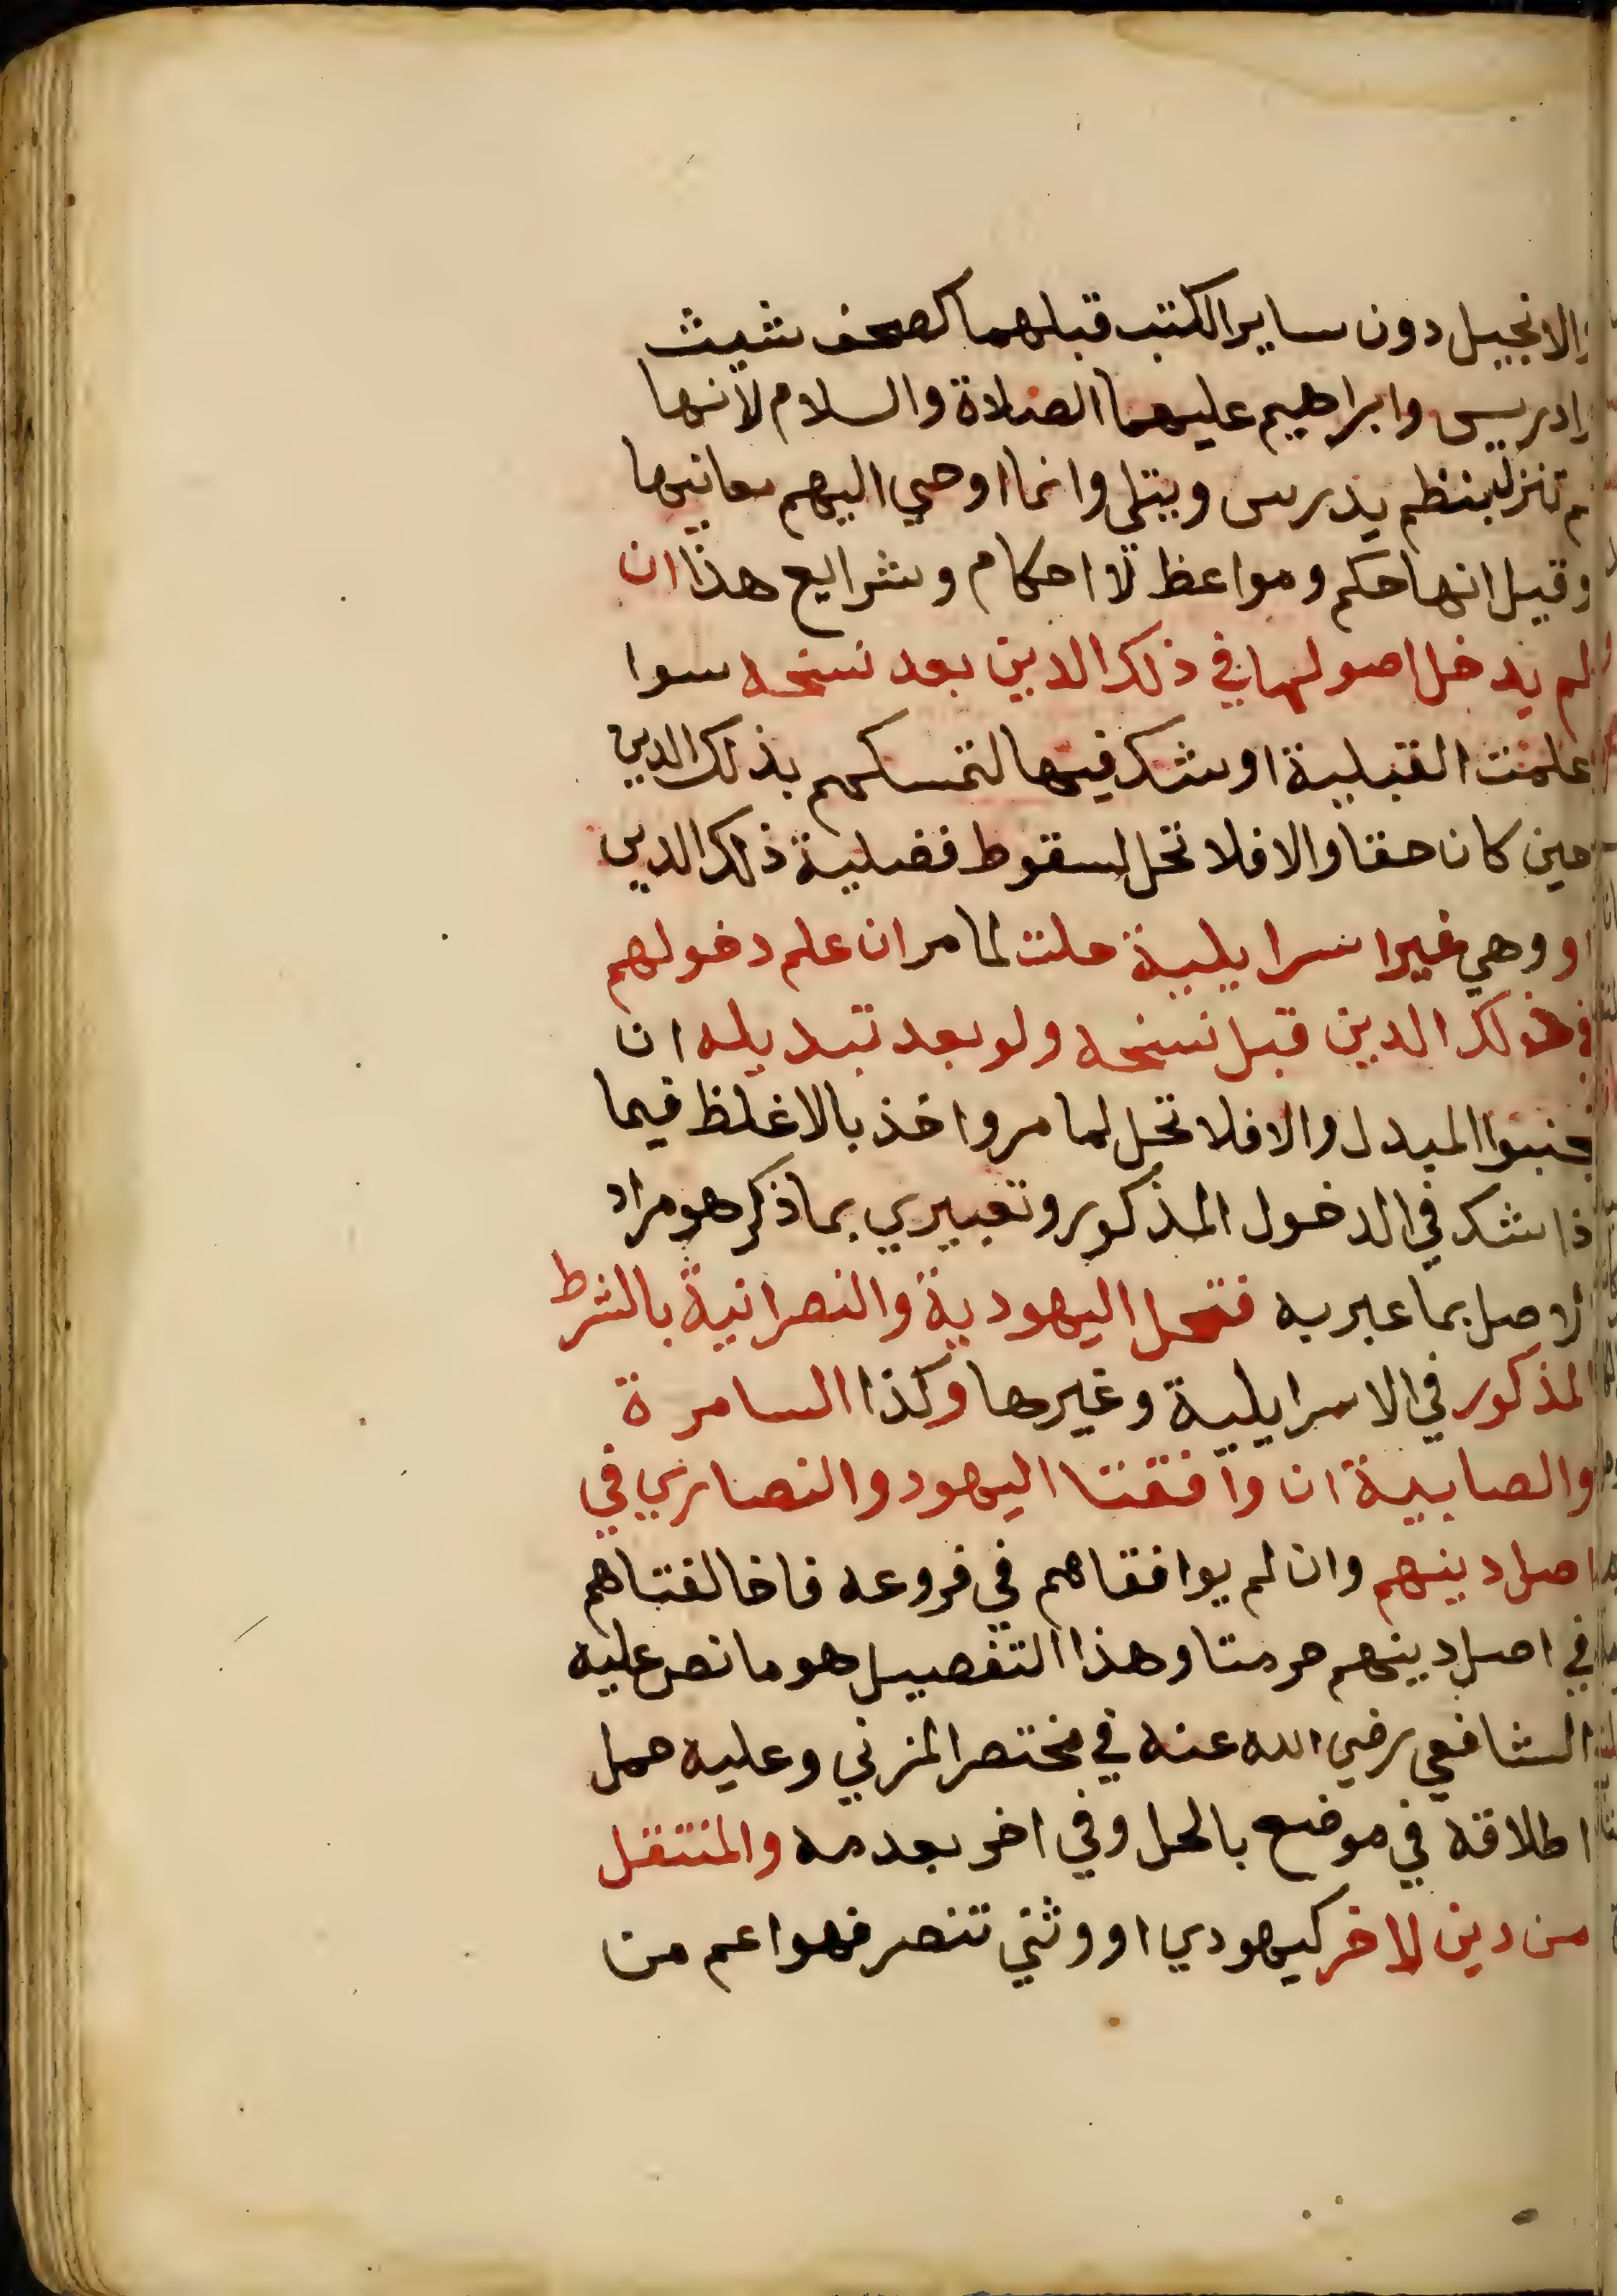 والانجيل دون ساير الكتب قبلهما كصحف شيث
وادريس وابراهيم عليهما الصلاة والسلام لانها
لم تنزل بنظم يدرس ويتلى وانما اوحي اليهم معانيها
وقيل انها حكم ومواعظ لا احكام وشرايع هذا ان
لم يدخل اصولها في ذلك الدين بعد نسخه سوا
علمت القبلية او شك فيها لتمسكهم بذلك الدين
حين كان حقا والا فلا تحل لسقوط فضلية ذلك الدين
او وهي غير اسرايلية حلت لما مر ان علم دخولهم
في ذلك الدين قبل نسخه ولو بعد تبديله ان
تجنبوا المبدل والا فلا تحل لما مر واخذ بالاغلظ فيما
اذا شك في الدخول المذكور وتعبيري بما ذكر هو مراد
الاصل بما عبر به فتحل اليهودية والنصرانية بالشرط
المذكور في الاسرايلية وغيرها وكذا السامرة
والصابية ان وافقتا اليهود والنصاري في
اصل دينهم وان لم يوافقاهم في فروعه فاخالفتاهم
في اصل دينهم حرمتا وهذا التفصيل هو ما نص عليه
الشافعي رضي الله عنه في مختصر المزني وعليه حمل
اطلاقه في موضع بالحل وفي اخر بعدمه والمنتقل
من دين لاخر كيهودي او وثني تنصر فهو اعم من